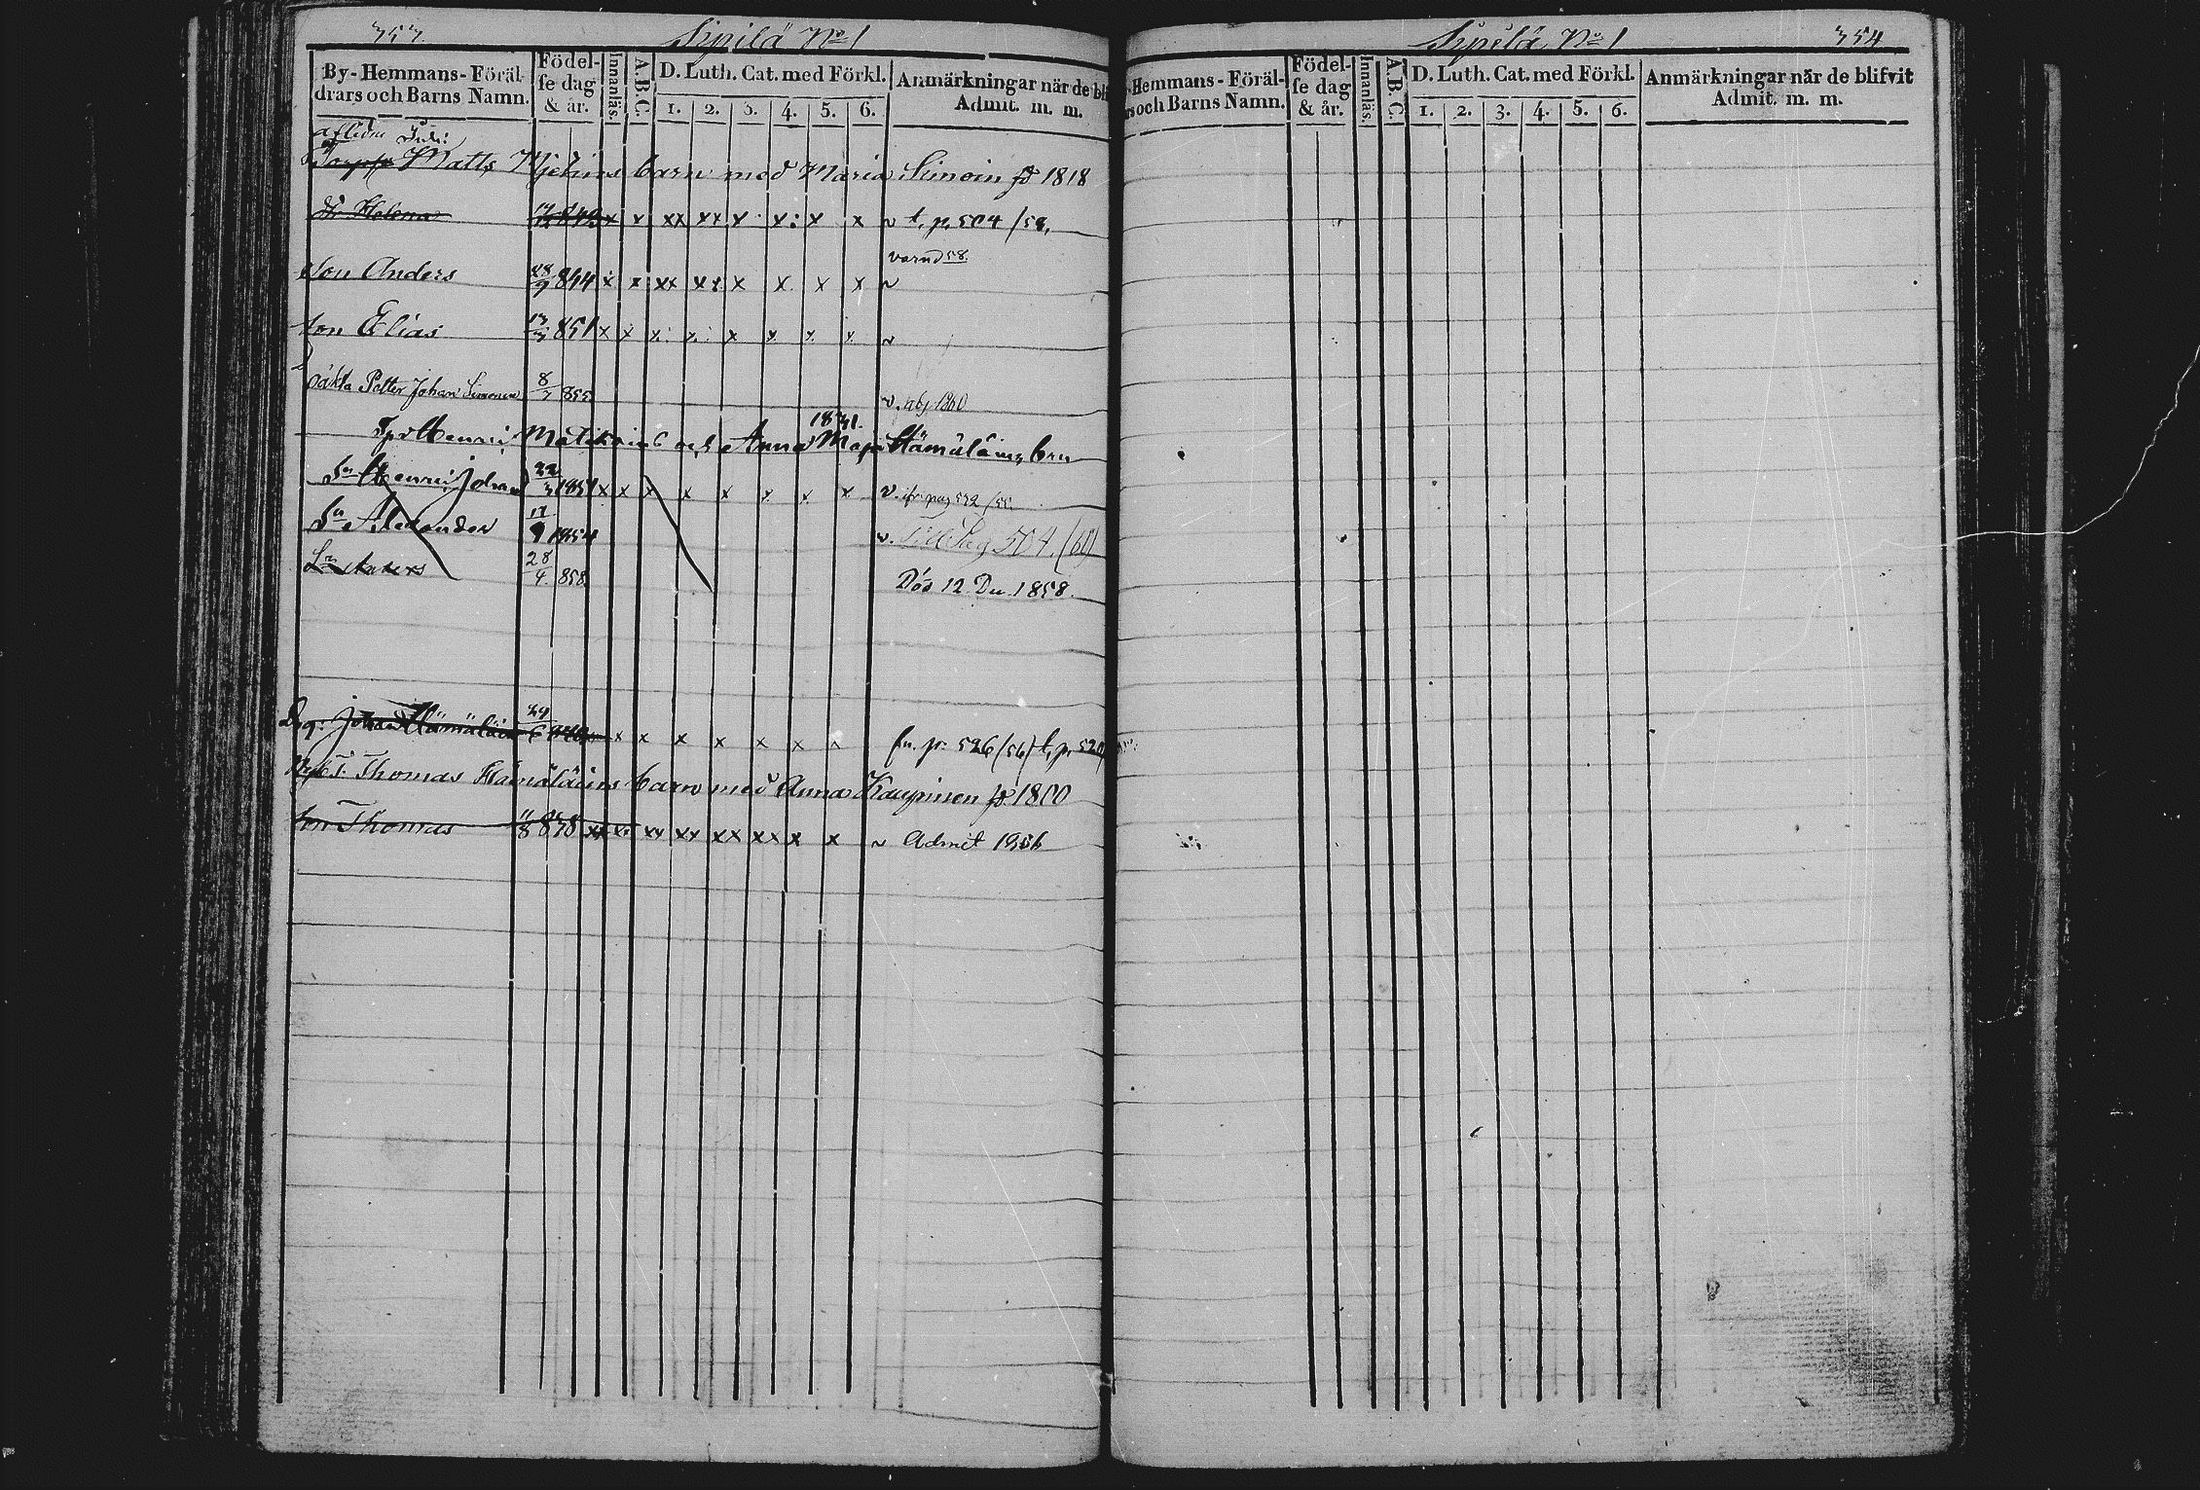 353.
Sipilä No 1
By- Hemmans- Föräl-
drars och Barns Namn.
Födel-
se dag
& år.
Innanläs.
A.B.C.
D. Luth. Cat. med Förkl.
1. 2. 3. 4. 5. 6.
Anmärkningar när de bli
Admit. m. m.
aflidn
Matts barn med Maria Simoin fd 1818
Dr Helena x x xx xx x x x x t. p. 504 /58.
Son Anders 28/9 844 x x xx xx x x x x
son Elias 13/3 851 x x x x x x x x
oäkta Petter Johan Simonen 8/7 855 v. abj 1860
Henric Matikain och Anna Maja Hämäläins brn
Sn Henric Johan 22/3 1851 x x x x x x x x v.
Sn Alexander 17/9 1854 v. Till Pag 504. (60)
Sn Anders 28/4 858 Död 12 De 1858.
Johan Hämäläin 24/6 x x x x x x fr. p. 526 (56) t. p. 520
Thomas Hämäläins barn med Anna Kaupinen fd 1800
son Thomas 11/8 838 xx x xx xx xx xx x x Admit 1856
Sipilä No 1
354
- Hemmans- Föräl-
rs och Barns Namn.
Födel-
se dag
& år.
Innanläs.
A.B.C.
D. Luth. Cat. med Förkl.
1. 2. 3. 4. 5. 6.
Anmärkningar när de blifvit
Admit. m. m.